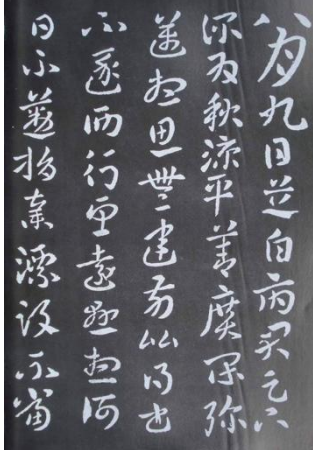 八月九日芝白府君足下
深為秋涼平善廣閑彌
邁想思無違前比得書
不遂西行望遠懸想何
日不勤捐棄漂沒不當